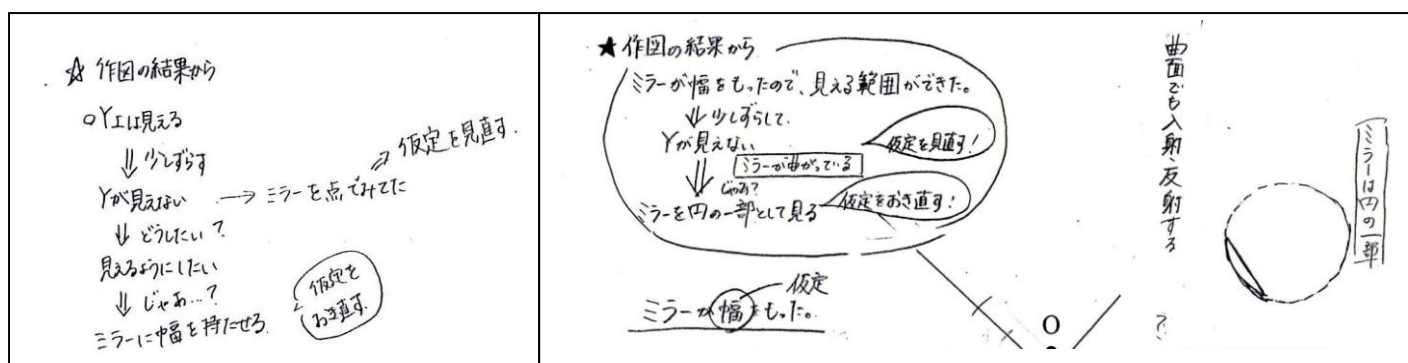 ☆ 作図の結果から
○Y工は見える
⇓ 少しずらす
Yが見えない → ミラーを点でみてた ⇒ 仮定を見直す.
⇓ どうしたい?
見えるようにしたい
⇓ じゃあ…?
ミラーに幅を持たせる
仮定を
おき直す.
★作図の結果から
ミラーが幅をもったので、見える範囲ができた。
⇓ 少しずらして.
Yが見えない
仮定を見直す!
ミラーが曲がっている
じゃあ?
ミラーを円の一部として見る
仮定をおき直す!
仮定
ミラーが幅をもった。
O
曲面でも入射、反射する
?
ミラーは円の一部